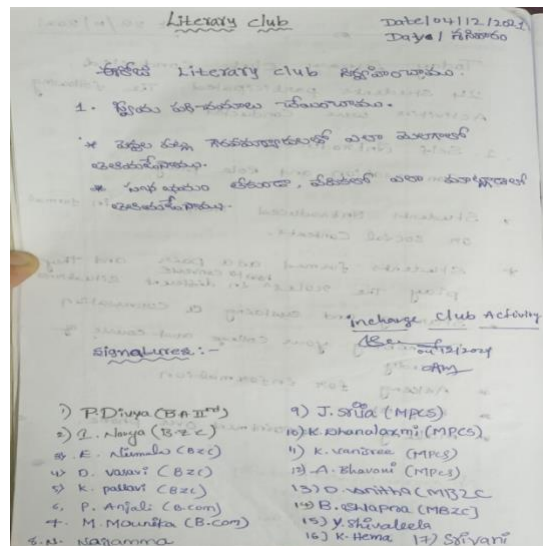 Literary club
Date/04/12/2021
Daye/ శనివారం
ఈరోజు Literary club నిర్వహించాము.
1. స్వీయ పరిచయాలు చేయించాము.
* పెద్దల మధ్య ఎలా మెలగాలో
తెలియజేసినాము.
* సభా భయం లేకుండా, వేదికలో ఎలా మాట్లాడాలో
తెలియజేసినాము.
incharge club Activity
04/12/2021
Signatures :-
1) P. Divya (BA IInd)
2) I. Navya (BZC)
3) E. Nirmala (BZC)
4) D. vasavi (BZC)
5) K. pallavi (BZC)
6. P. Anjali (B.com)
7. M. Mounika (B.com)
8. N. Nagamma
9) J. Srija (MPCS)
10) K. Dhanalaxmi (MPCS)
11) K. vanisree (MPCS)
12) A. Bhavani (MPCS)
13) D. vanitha (MBZC
14) B. Swapna (MBZC]
15) Y. Shivaleela
16) K. Hema
17) Srivani